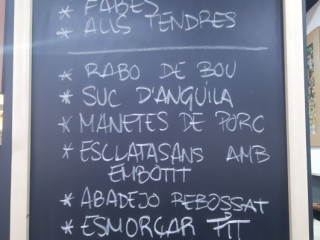 * FABES
* ALLS TENDRES
* RABO DE BOU
* SUC D'ANGUILA
* MANETES DE PORC
* ESCLATASANS AMB
EMBOTIT
* ABADEJO REBOSSAT
* ESMORÇAR